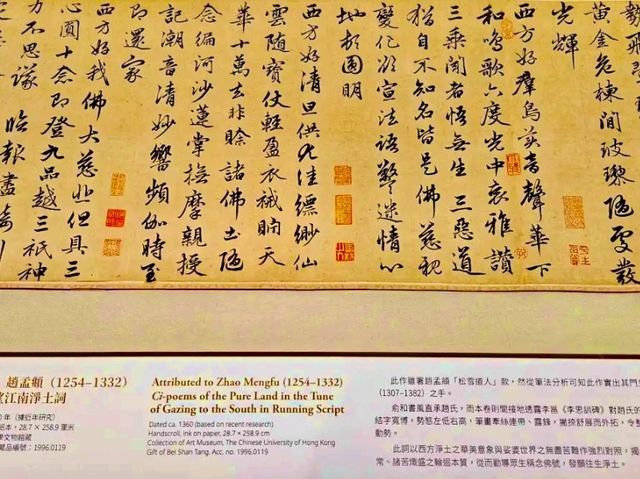 黃金危棟間玻瓈隨處發
光輝
西方好群鳥美音聲華下
和鳴歌六度光中哀雅讚
三乘聞者悟無生三惡道
猶自不知名皆是佛慈親
變化欲宣法語警迷情心
地頓圓明
西方好清旦供尤佳縹緲仙
雲隨寶仗輕盈衣裓貯天
華十萬去非賒諸佛土隨
念遍河沙蓮掌撫摩親授
記潮音清妙響頻伽時至
即還家
西方好我佛大慈悲但具三
心圓十念即登九品越三祇神
力不思議 臨報盡
趙孟頫（1254–1332）
望江南淨土詞
年（據近年研究）
紙本，28.7 × 258.9 厘米
文物館藏
藏品編號：1996.0119
Attributed to Zhao Mengfu (1254–1332)
Ci-poems of the Pure Land in the Tune
of Gazing to the South in Running Script
Dated ca. 1360 (based on recent research)
Handscroll, ink on paper, 28.7 × 258.9 cm
Collection of Art Museum, The Chinese University of Hong Kong
Gift of Bei Shan Tang. Acc. no. 1996.0119
此作雖署趙孟頫「松雪道人」款，然從筆法分析可知此作實出其門
(1307-1382) 之手。
俞和書風直承趙氏，而本卷則間接地透露李邕《李思訓碑》對趙氏的
結字寬博，勢態左低右高，筆畫牽絲連帶、露鋒，撇捺舒展而外拓，令
動勢。
此詞以西方淨土之華美意象與娑婆世界之無盡苦難作強烈對照，揭
常、諸苦熾盛之輪迴本質，從而勸導眾生稱念佛號，發願往生淨土。